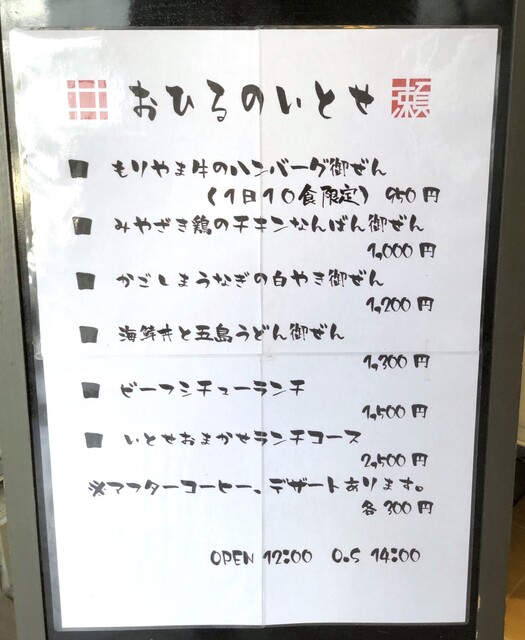 井 おひるのいとせ 瀬
■ もりやま牛のハンバーグ御ぜん
(1日10食限定) 950円
■ みやざき鶏のチキンなんばん御ぜん
1,000円
■ かごしまうなぎの白やき御ぜん
1,200円
■ 海鮮丼と五島うどん御ぜん
1,300円
■ ビーフシチューランチ
1,500円
■ いとせおまかせランチコース
2,500円
※アフターコーヒー、デザートあります。
各300円
OPEN 12:00 O.S 14:00